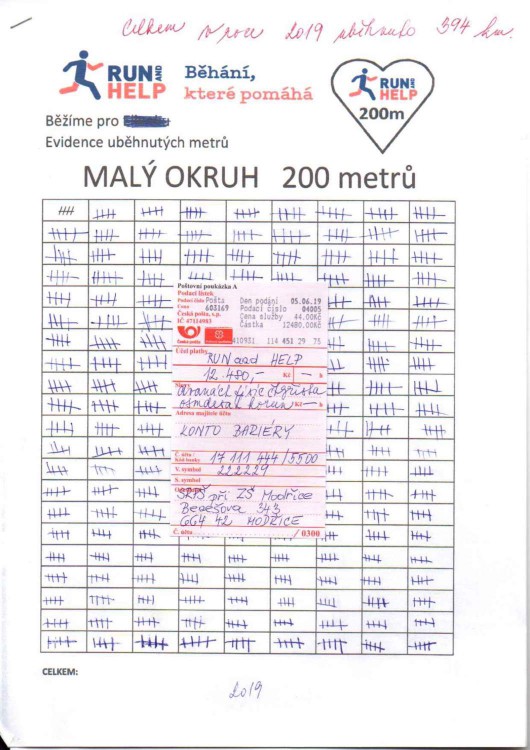 Celkem v roce 2019 uběhnuto 394 km.
RUN AND HELP
Běhání,
které pomáhá
RUN AND HELP
200m
Běžíme pro
Evidence uběhnutých metrů
MALÝ OKRUH 200 metrů
Poštovní poukázka A
Podací lístek
Podací číslo Pošta Den podání 05.06.19
Cena 603169 Podací číslo 04005
Česká pošta, s.p. Cena služby 44.00Kč
IČ 47114983 Částka 12480.00Kč
410931 114 451 29 75
Účel platby RUN and HELP
12 480,- Kč — h
Slovy dvanáct tisíc čtyřista
osmdesát korun Kč — h
Adresa majitele účtu
KONTO BARIÉRY
Č. účtu / Kód banky 17 111 444 / 5500
V. symbol 222229
S. symbol
SRPŠ při ZŠ Modřice
Benešova 343
664 42 MODŘICE
Č. účtu / 0300
CELKEM:
2019